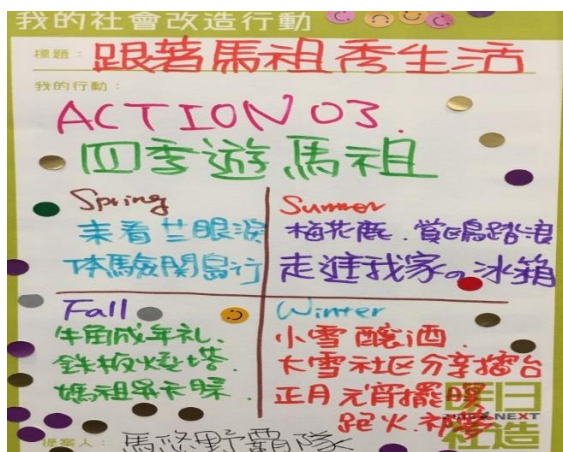 我的社會改造行動
標題：跟著馬祖秀生活
我的行動：
ACTION 03.
四季遊馬祖
Spring
来看芒眼淚
体驗関島行
Summer
梅花鹿．賞鷗踏浪
走進我家の冰箱
Fall
牛角成年礼、
鉄板燒塔．
媽祖昇天
Winter
小雪釀酒．
大雪社区分享擂台
正月元宵擺暝
跑火．祁夢
NEXT
社造
提案人：馬悠野霸隊